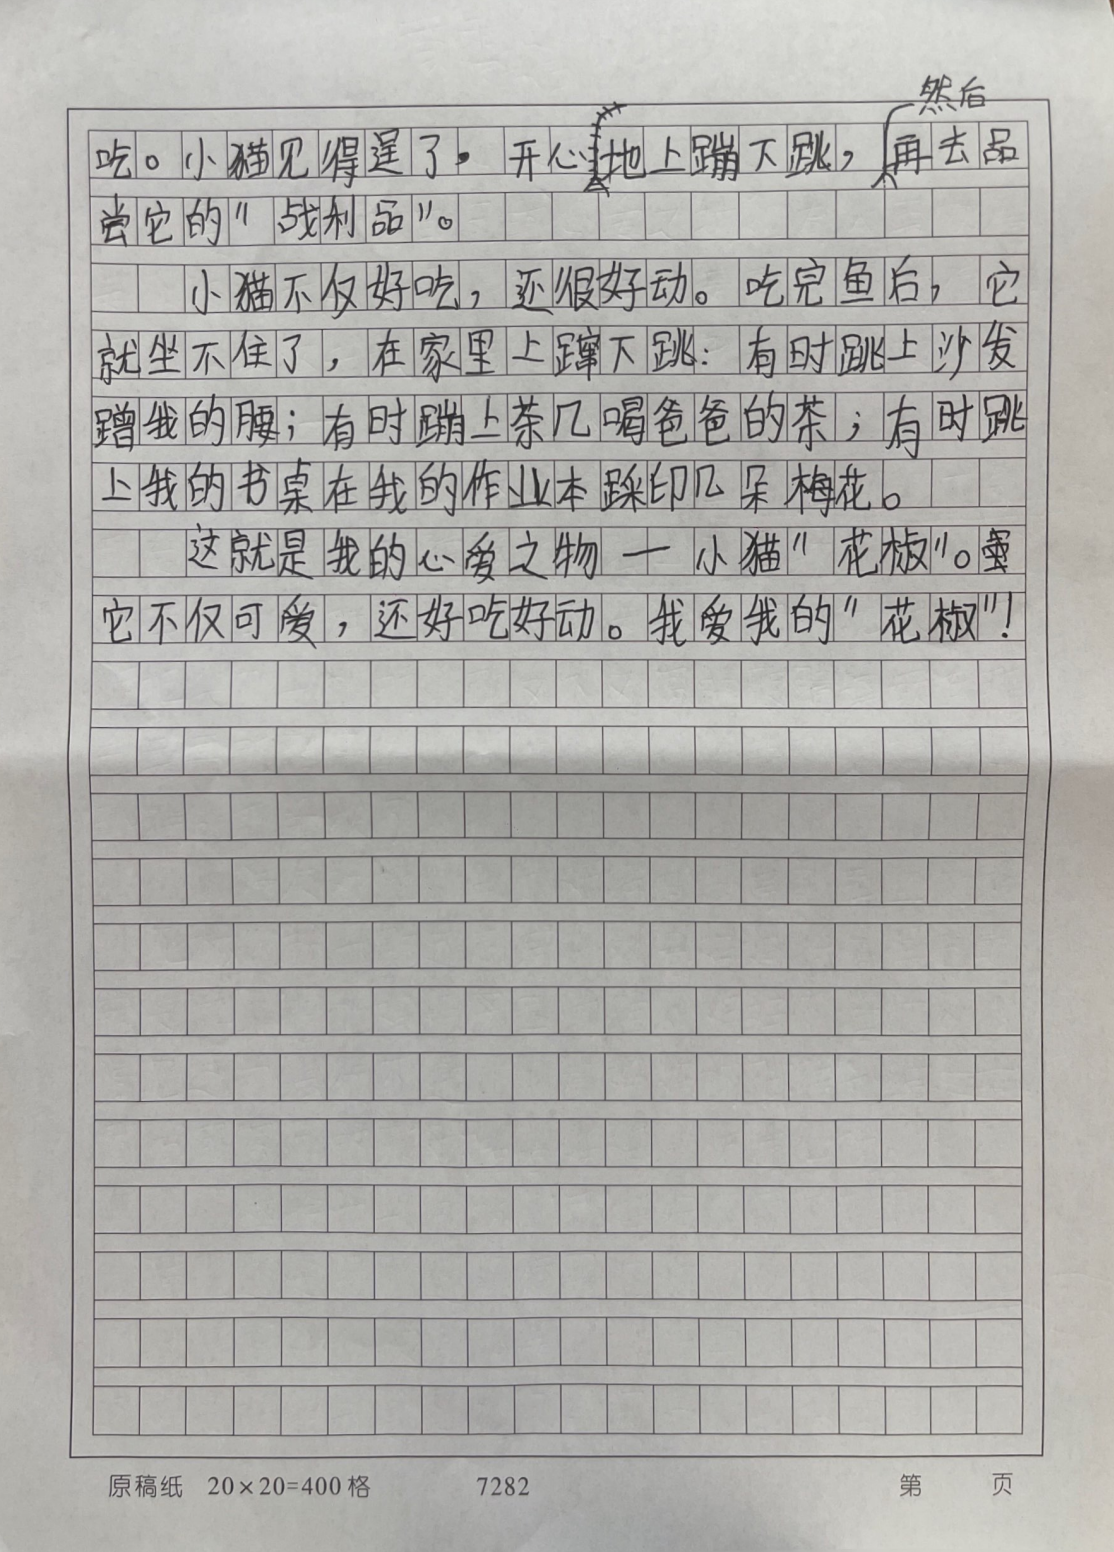 然后
吃。小猫见得逞了,开心地上蹦下跳,再去品
尝它的"战利品"。
小猫不仅好吃,还很好动。吃完鱼后,它
就坐不住了,在家里上蹿下跳:有时跳上沙发
蹭我的腰;有时蹦上茶几喝爸爸的茶;有时跳
上我的书桌在我的作业本踩印几朵梅花。
这就是我的心爱之物一小猫"花椒"。
它不仅可爱,还好吃好动。我爱我的"花椒"!
原稿纸 20×20=400格 7282 第 页